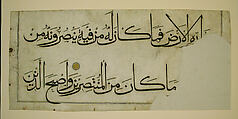 الارض فما كان له من فئة ينصرونه من
ما كان من المنتصرين واصبح الذين